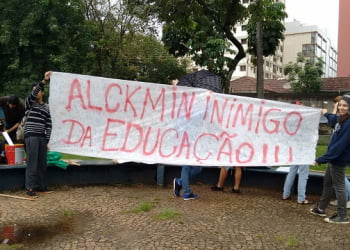 ALCKMIN INIMIGO
DA EDUCAÇÃO!!!